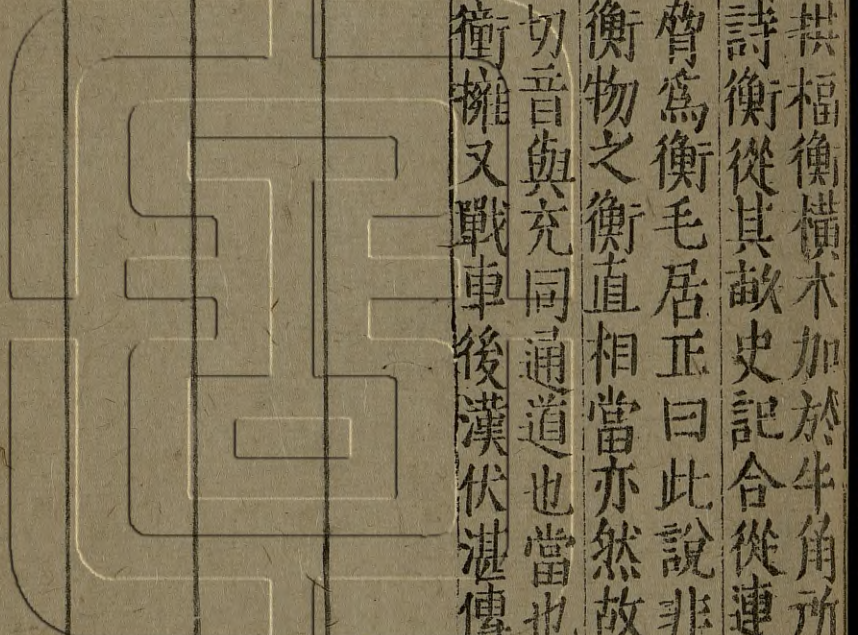 楅衡橫木加於牛角所
詩衡從其畝史記合從連
脅爲衡毛居正曰此說非
衡物之衡直相當亦然故
切音與充同通道也當也
衝擁又戰車後漢伏湛傳